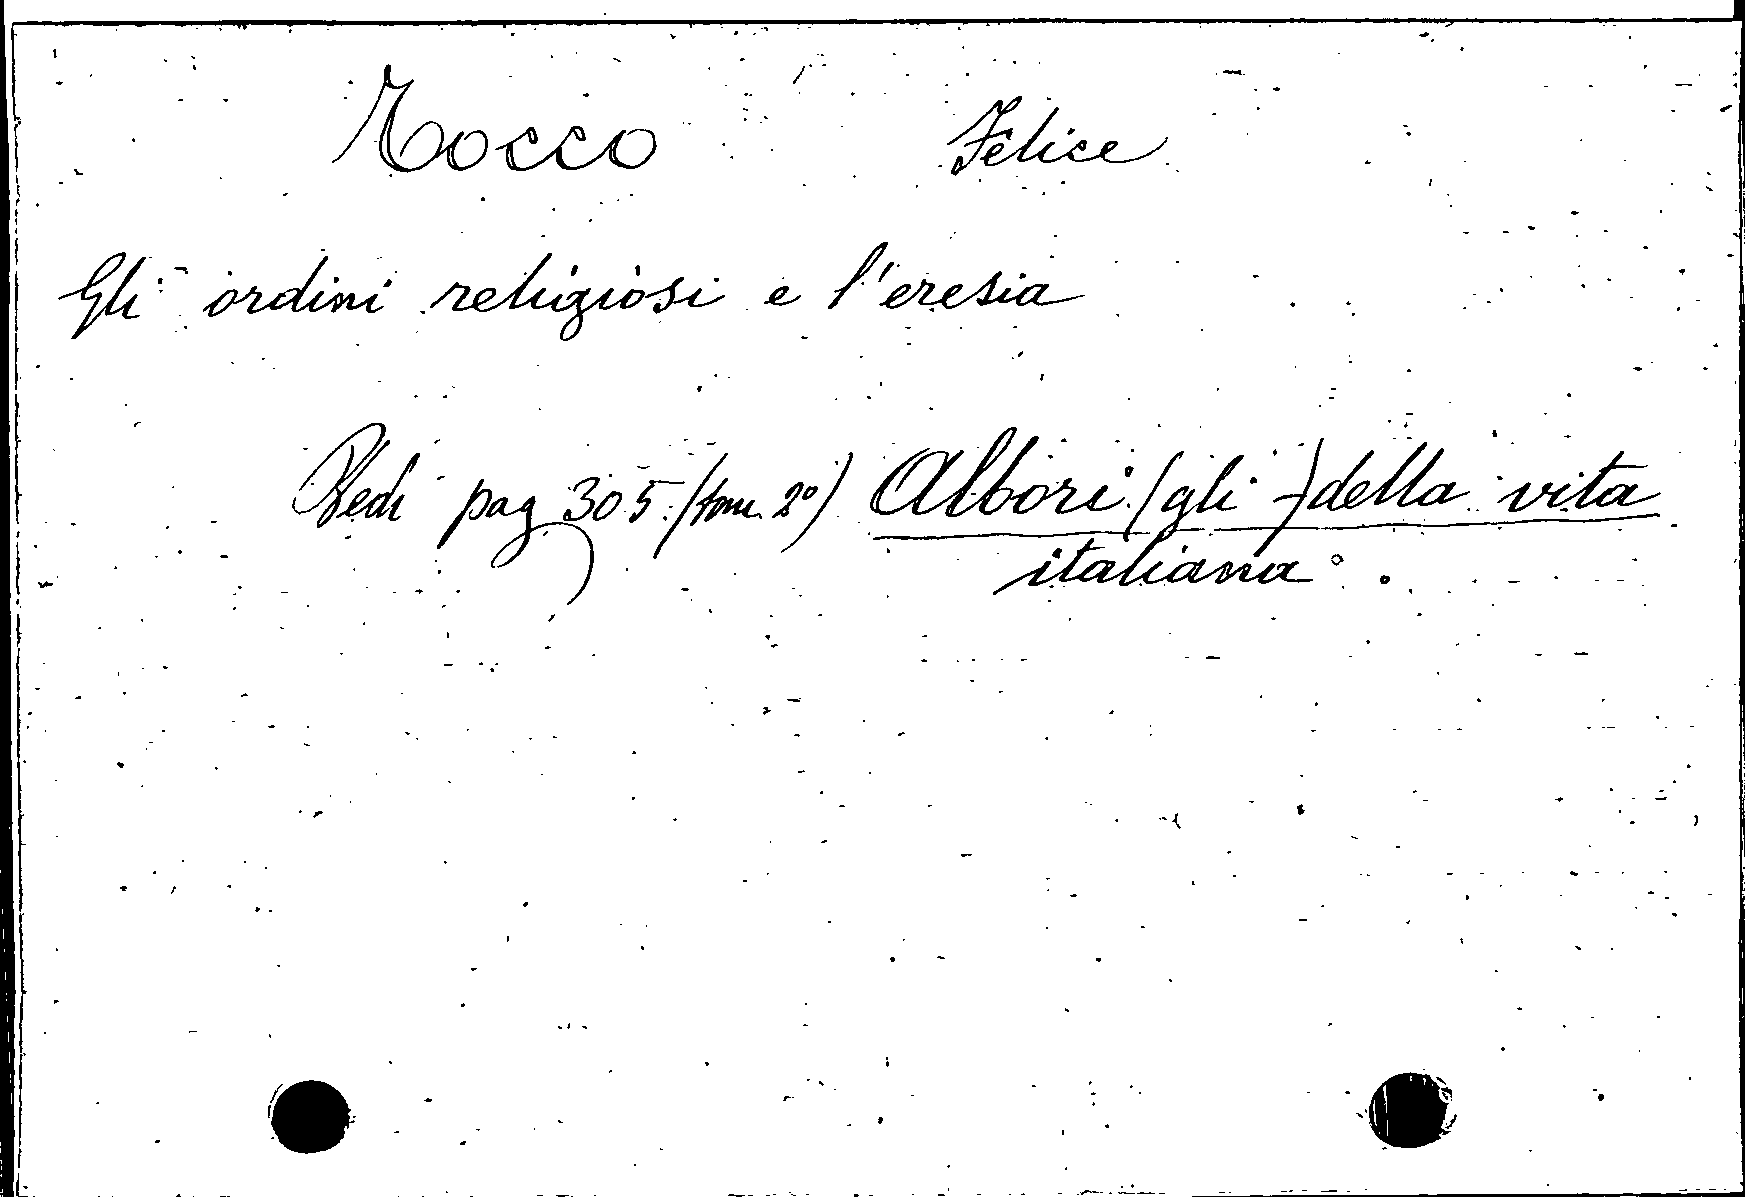 Tocco Felice
Gli ordini religiosi e l'eresia
Vedi pag 305 (tom. 2°) Albori (gli -) della vita
italiana.